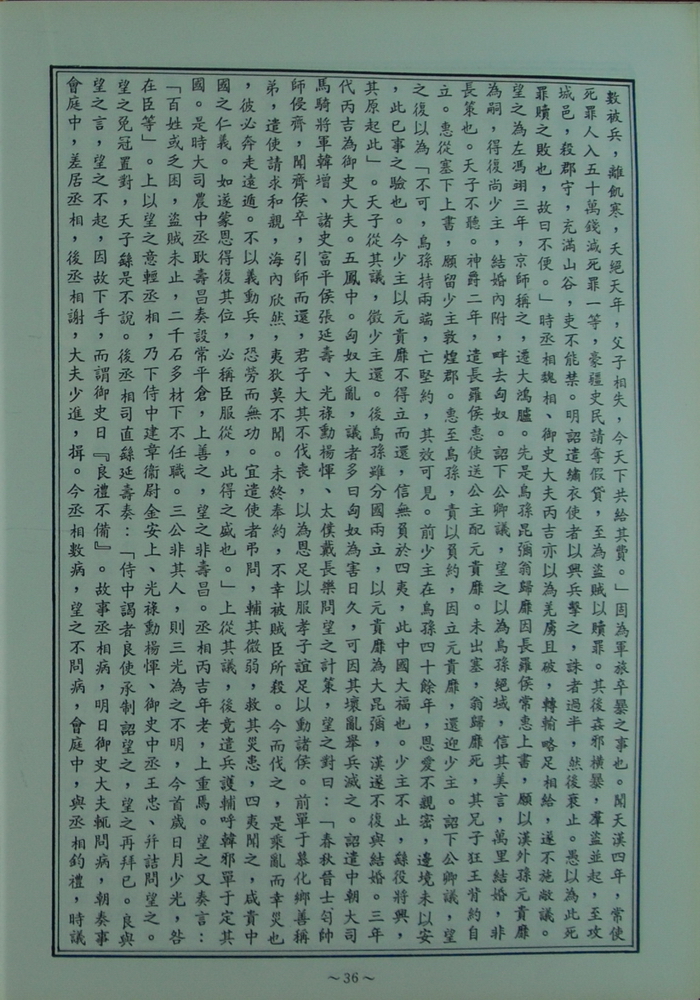 數被兵，離飢寒，夭絕天年，父子相失，今天下共給其費。」固為軍旅卒暴之事也。聞天漢四年，常使
死罪人入五十萬錢減死罪一等，豪彊吏民請奪假貣，至為盜賊以贖罪。其後姦邪橫暴，羣盜並起，至攻
城邑，殺郡守，充滿山谷，吏不能禁。明詔遣繡衣使者以興兵擊之，誅者過半，然後衰止。愚以為此死
罪贖之敗也，故曰不便。」時丞相魏相、御史大夫丙吉亦以為羌虜且破，轉輸略足相給，遂不施敞議。
望之為左馮翊三年，京師稱之，遷大鴻臚。先是烏孫昆彌翁歸靡因長羅侯常惠上書，願以漢外孫元貴靡
為嗣，得復尚少主，結婚內附，畔去匈奴。詔下公卿議，望之以為烏孫絕域，信其美言，萬里結婚，非
長策也。天子不聽。神爵二年，遣長羅侯惠使送公主配元貴靡。未出塞，翁歸靡死，其兄子狂王背約自
立。惠從塞下上書，願留少主敦煌郡。惠至烏孫，責以負約，因立元貴靡，還迎少主。詔下公卿議，望
之復以為「不可，烏孫持兩端，亡堅約，其效可見。前少主在烏孫四十餘年，恩愛不親密，邊境未以安
，此已事之驗也。今少主以元貴靡不得立而還，信無負於四夷，此中國大福也。少主不止，繇役將興，
其原起此」。天子從其議，徵少主還。後烏孫雖分國兩立，以元貴靡為大昆彌，漢遂不復與結婚。三年
代丙吉為御史大夫。五鳳中。匈奴大亂，議者多曰匈奴為害日久，可因其壞亂舉兵滅之。詔遣中朝大司
馬騎將軍韓增、諸吏富平侯張延壽、光祿勳楊惲、太僕戴長樂問望之計策，望之對曰：「春秋晉士匄帥
師侵齊，聞齊侯卒，引師而還，君子大其不伐喪，以為恩足以服孝子誼足以動諸侯。前單于慕化鄉善稱
弟，遣使請求和親，海內欣然，夷狄莫不聞。未終奉約，不幸被賊臣所殺。今而伐之，是乘亂而幸災也
，彼必奔走遠遁。不以義動兵，恐勞而無功。宜遣使者弔問，輔其微弱，救其災患，四夷聞之，咸貴中
國之仁義。如遂蒙恩得復其位，必稱臣服從，此得之盛也。」上從其議，後竟遣兵護輔呼韓邪單于定其
國。是時大司農中丞耿壽昌奏設常平倉，上善之，望之非壽昌。丞相丙吉年老，上重焉。望之又奏言：
「百姓或乏困，盜賊未止，二千石多材下不任職。三公非其人，則三光為之不明，今首歲日月少光，咎
在臣等」。上以望之意輕丞相，乃下侍中建章衞尉金安上、光祿勳楊惲、御史中丞王忠、幷詰問望之。
望之免冠置對，天子繇是不說。後丞相司直繇延壽奏：「侍中謁者良使承制詔望之，望之再拜已。良與
望之言，望之不起，因故下手，而謂御史曰『良禮不備』。故事丞相病，明日御史大夫輒問病，朝奏事
會庭中，差居丞相，後丞相謝，大夫少進，揖。今丞相數病，望之不問病，會庭中，與丞相鈞禮，時議
～36～